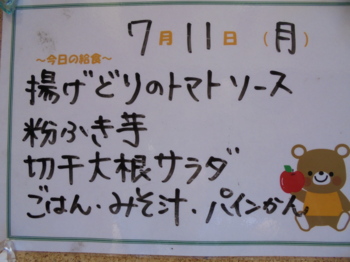 7月11日(月)
～今日の給食～
揚げどりのトマトソース
粉ふき芋
切干大根サラダ
ごはん・みそ汁・パインかん